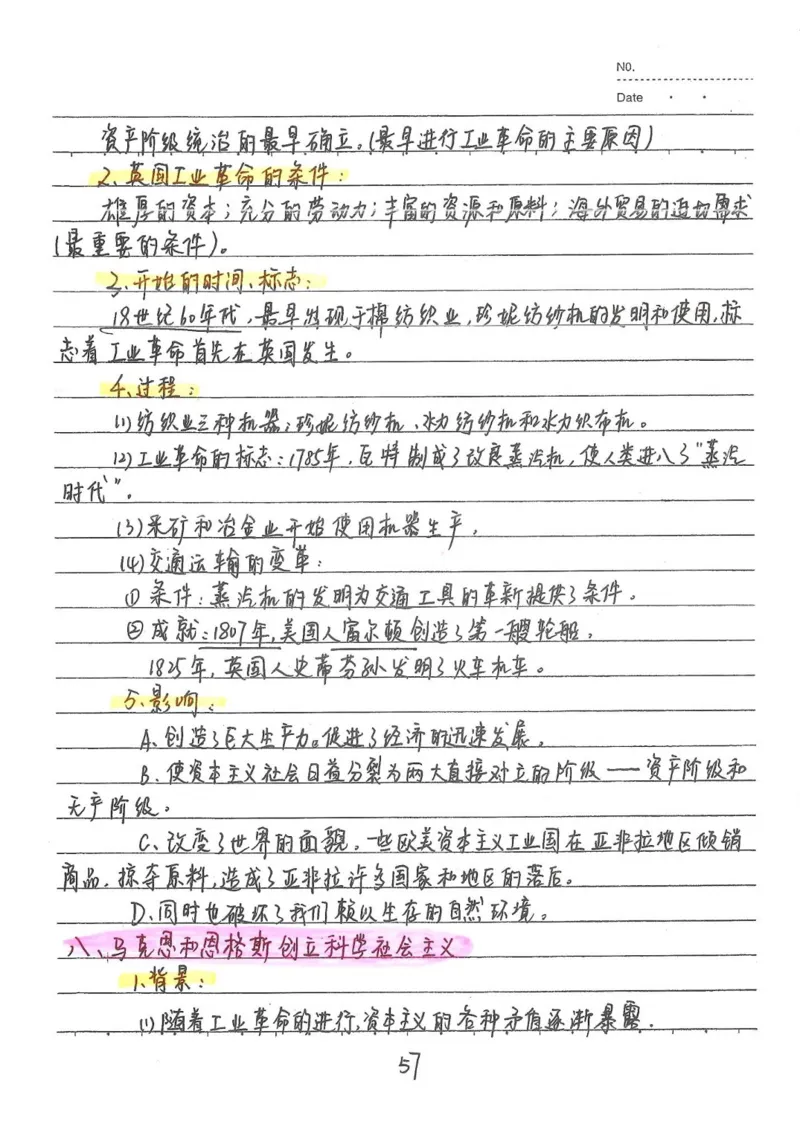 No.
Date
资产阶级统治的最早确立。(最早进行工业革命的主要原因)
2、英国工业革命的条件:
雄厚的资本;充分的劳动力;丰富的资源和原料;海外贸易的迫切需求
(最重要的条件)。
3、开始的时间、标志:
18世纪60年代,最早出现于棉纺织业,珍妮纺纱机的发明和使用,标
志着工业革命首先在英国发生。
4、过程:
(1)纺织业三种机器:珍妮纺纱机、水力纺纱机和水力织布机。
(2)工业革命的标志:1785年,瓦特制成了改良蒸汽机,使人类进入了"蒸汽
时代"。
(3)采矿和冶金业开始使用机器生产。
(4)交通运输的变革:
①条件:蒸汽机的发明为交通工具的革新提供了条件。
②成就:1807年,美国人富尔顿创造了第一艘轮船。
1825年,英国人史蒂芬孙发明了火车机车。
5、影响:
A、创造了巨大生产力。促进了经济的迅速发展。
B、使资本主义社会日益分裂为两大直接对立的阶级——资产阶级和
无产阶级。
C、改变了世界的面貌。一些欧美资本主义工业国在亚非拉地区倾销
商品,掠夺原料,造成了亚非拉许多国家和地区的落后。
D、同时也破坏了我们赖以生存的自然环境。
八、马克思和恩格斯创立科学社会主义
1、背景:
(1)随着工业革命的进行,资本主义的各种矛盾逐渐暴露.
57